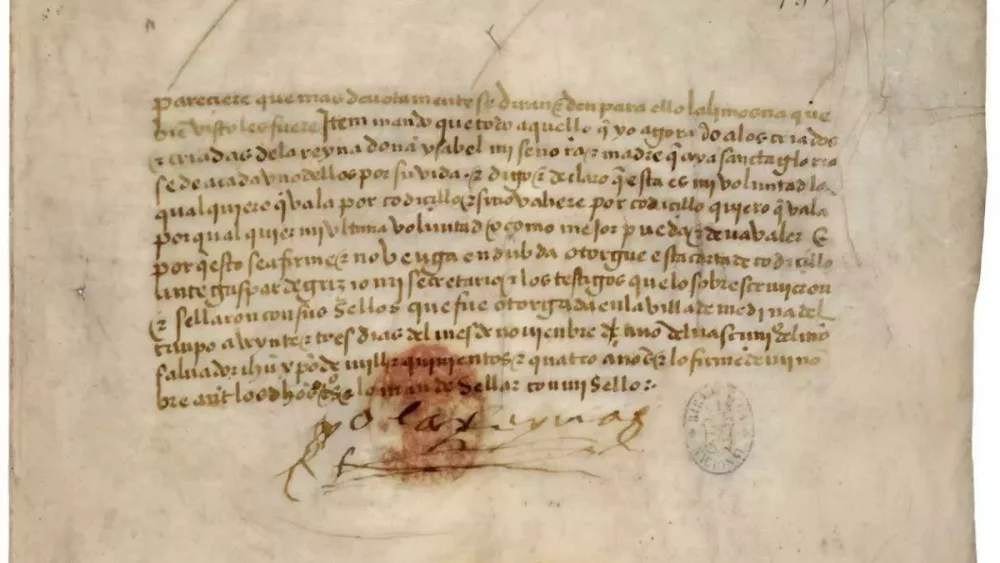 pareciere que mas devotamente se diran ⁊ den para ello la limosna que
bie visto les fuere Item mando que todo aquello q̃ yo agora do a los criados
⁊ criadas dela reyna doña ysabel mi señora ⁊ madre q̃ aya sancta gloria
se de a cada uno dellos por su vida. ⁊ digo ⁊ declaro q̃ esta es mi voluntad la
qual quiero q̃ vala por codicillo ⁊ si no valiere por codicillo quiero q̃ vala
por qual quier mi ultima voluntad o como mejor pueda ⁊ deva valer E
por q̃ esto sea firme ⁊ no venga en dubda otorgue esta carta de codicillo
ante gaspar de grizio mi secretario ⁊ los testigos que lo sobrescrivieron
⁊ sellaron con sus sellos que fue otorgada en la villa de medina del
campo a veynte ⁊ tres dias del mes de noviembre del año del nascimi de nr̃o
salvador ihũ xp̃o de mill ⁊ quinientos ⁊ quatro años ⁊ lo firme de mi nõ
bre ant los dhos tos ⁊ lo mande sellar con mi sello ⁊
yo la reyna
BIBLIOTECA NACIONAL